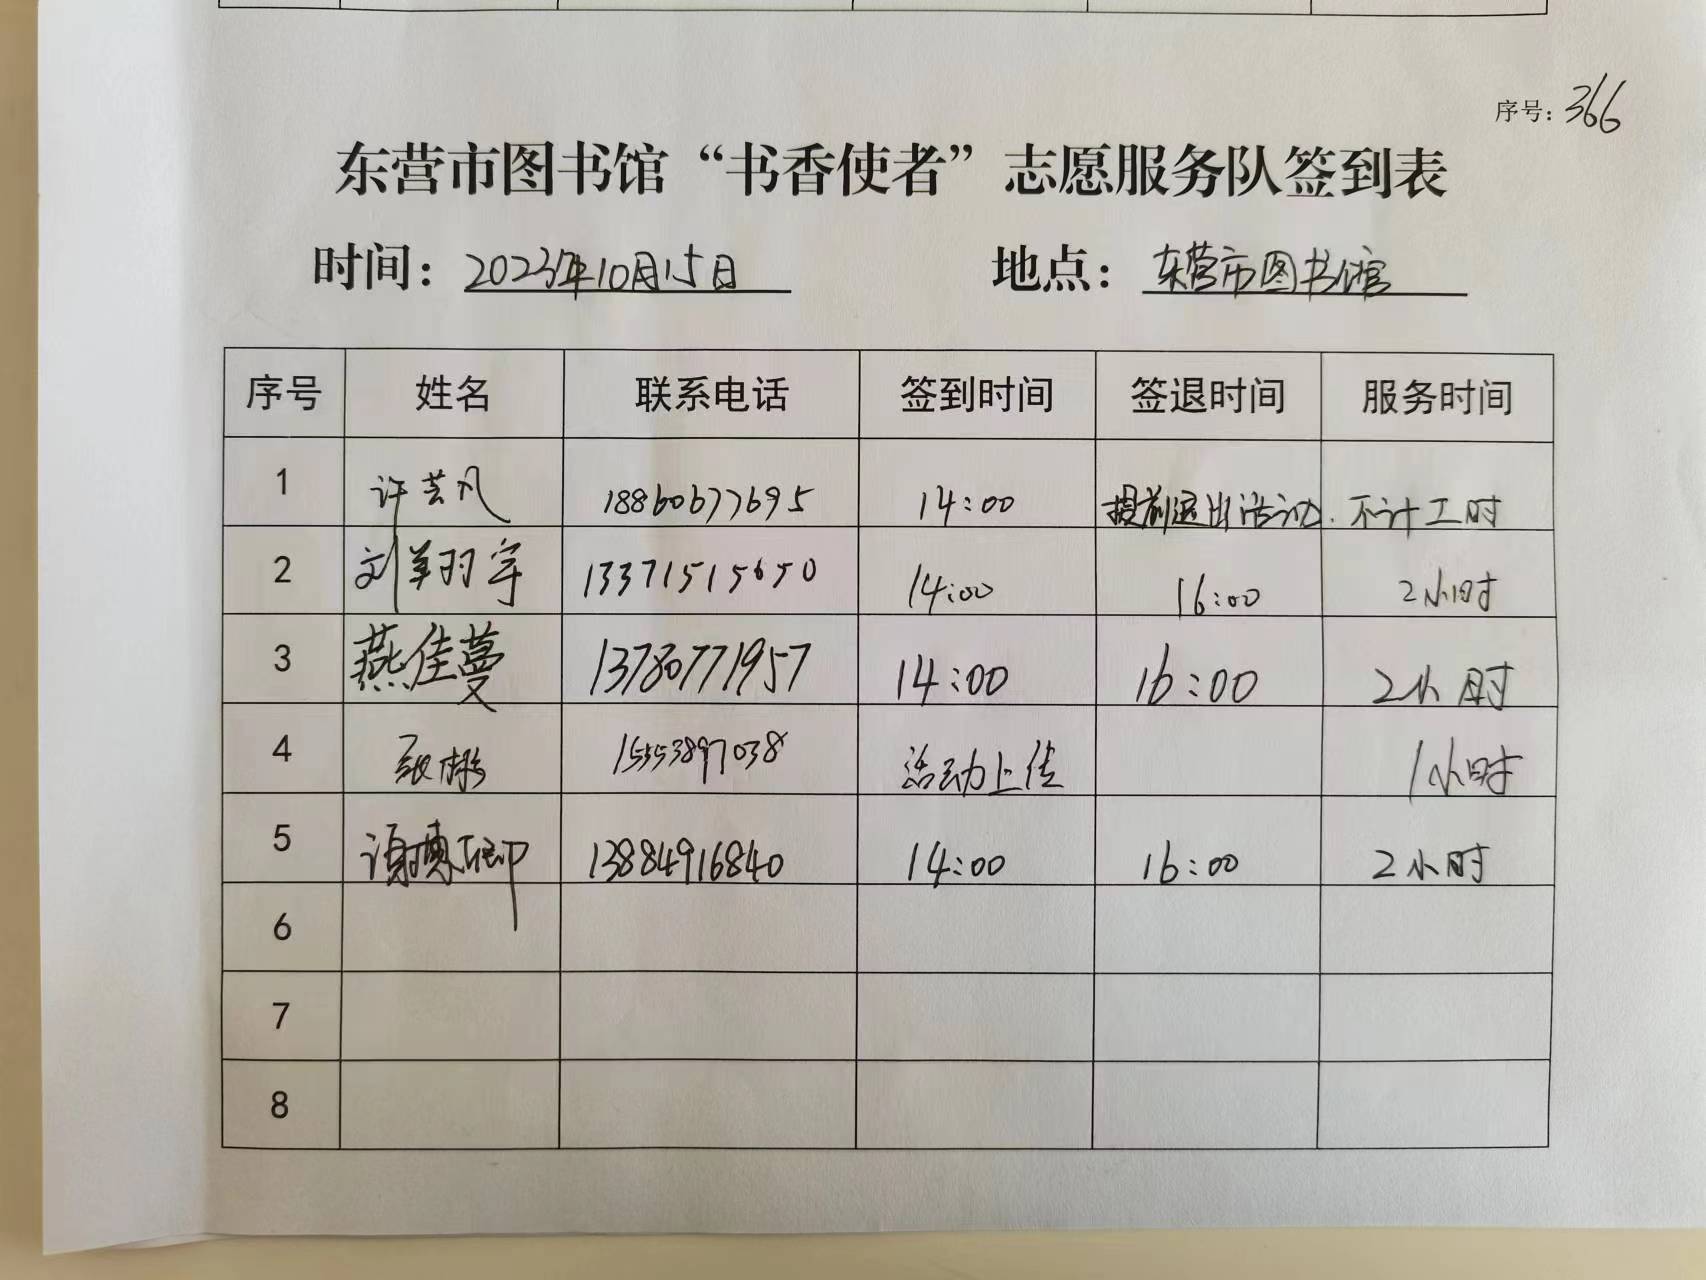 序号：366
东营市图书馆“书香使者”志愿服务队签到表
时间：2023年10月15日 地点：东营市图书馆
序号 姓名 联系电话 签到时间 签退时间 服务时间
1 许芸凡 18860677695 14:00 提前退出活动. 不计工时
2 刘翔宇 13371515650 14:00 16:00 2小时
3 燕佳蔓 13780771957 14:00 16:00 2小时
4 张彬 15553897038 活动上传 1小时
5 谢博 13884916840 14:00 16:00 2小时
6
7
8